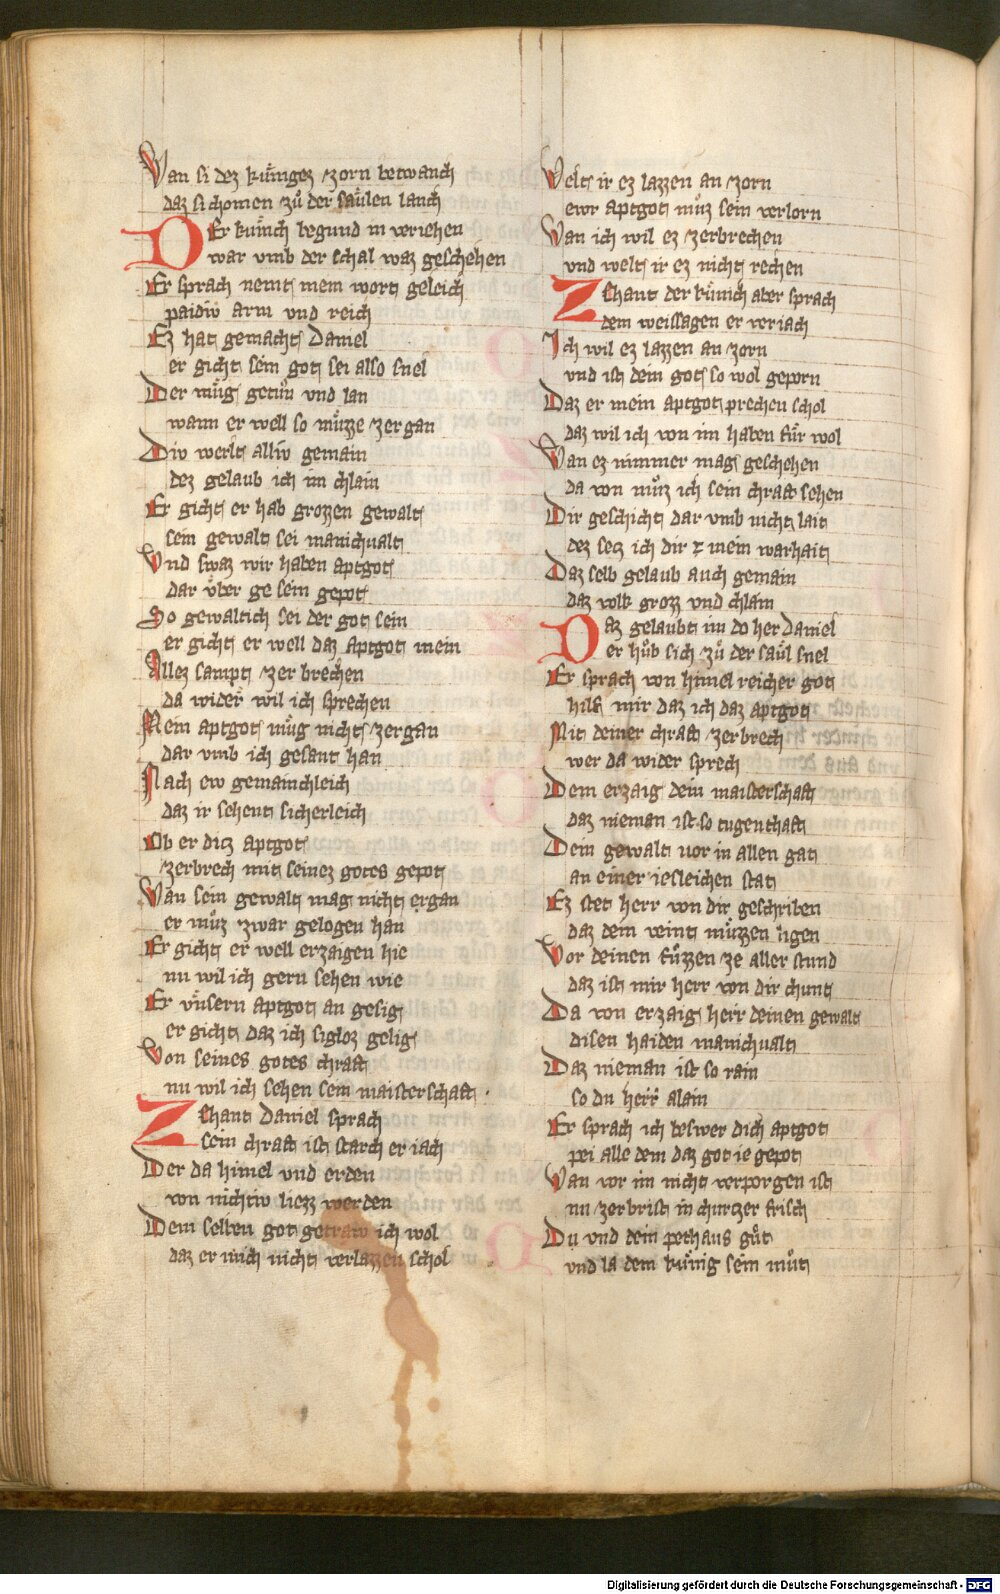 Van si dez kuͤngez zorn betwanch
daz si chomen zuͦ der saͤulen lanch
DEr kuͤnch begund in veriehen
war vmb der schal waz geschehen
Er sprach nemt mein wort geleich
paidiv arm vnd reich
Ez hat gemacht Daniel
er gicht sein got sei also snel
Der muͤg getuͦn vnd lan
wann er well so muͤzze zergan
Div werlt alliv gemain
dez gelaub ich im chlain
Er gicht er hab grozzen gewalt
sein gewalt sei manichualt
Vnd swaz wir haben aptgot
dar vͤber ge sein gepot
So gewaltich sei der got sein
er gicht er well daz aptgot mein
Allez sampt zer brechen
da wider wil ich sprechen
Mein aptgot muͤg nicht zergan
dar vmb ich gesant han
Nach ew gemainchleich
daz ir sehent sicherleich
Ob er ditz aptgot
zerbrech mit seinez gotes gepot
Van sein gewalt mag nicht ergan
er muͦz zwar gelogen han
Er gicht er well erzaigen hie
nu wil ich gern sehen wie
Er vnsern aptgot an gesig
er gicht daz ich sigloz gelig
Von seines gotes chraft
nu wil ich sehen sein maisterschaft .
Zehant Daniel sprach
sein chraft ist starch er iach
Der da himel vnd erden
von nichtiv liezz werden
Dem selben got getraw ich wol
daz er mich nicht verlazzen schol
Welt ir ez lazzen an zorn
ewr aptgot muͦz sein verlorn
Van ich wil ez zerbrechen
vnd welt ir ez nicht rechen
Zehant der kuͤnich aber sprach
dem weissagen er veriach
Ich wil ez lazzen an zorn
vnd ist dein got so wol geporn
Daz er mein aptgot prechen schol
daz wil ich von im haben fuͤr wol
Van ez nimmer mag geschehen
da von muͦz ich sein chraft sehen
Dir geschicht dar vmb nicht lait
dez setz ich dir ze mein warhait
Daz selb gelaub auch gemain
daz volk groz vnd chlain
DAz gelaubt im do her Daniel
er huͦb sich zuͦ der saͤul snel
Er sprach von himel reicher got
hilf mir daz ich daz aptgot
Mit deiner chraft zerbrech
wer da wider sprech
Dem erzaig dein maisterschaft
daz nieman ist so tugenthaft
Dein gewalt vor in allen gat
an einer iesleichen stat
Ez stet herr von dir geschriben
daz dein veint muͤzzen ligen
Vor deinen fuͤzzen ze aller stund
daz ist mir herr von dir chunt
Da von erzaig herr deinen gewalt
disen haiden manichualt
Daz nieman ist so rain
so du herr alain
Er sprach ich beswer dich aptgot
pei alle dem daz got ie gepot
Van vor im nicht verporgen ist
nu zerbrist in churtzer frist
Du vnd dein pethaus guͦt
vnd la dem kuͤnig sein muͦt
Digitalisierung gefördert durch die Deutsche Forschungsgemeinschaft - DFG